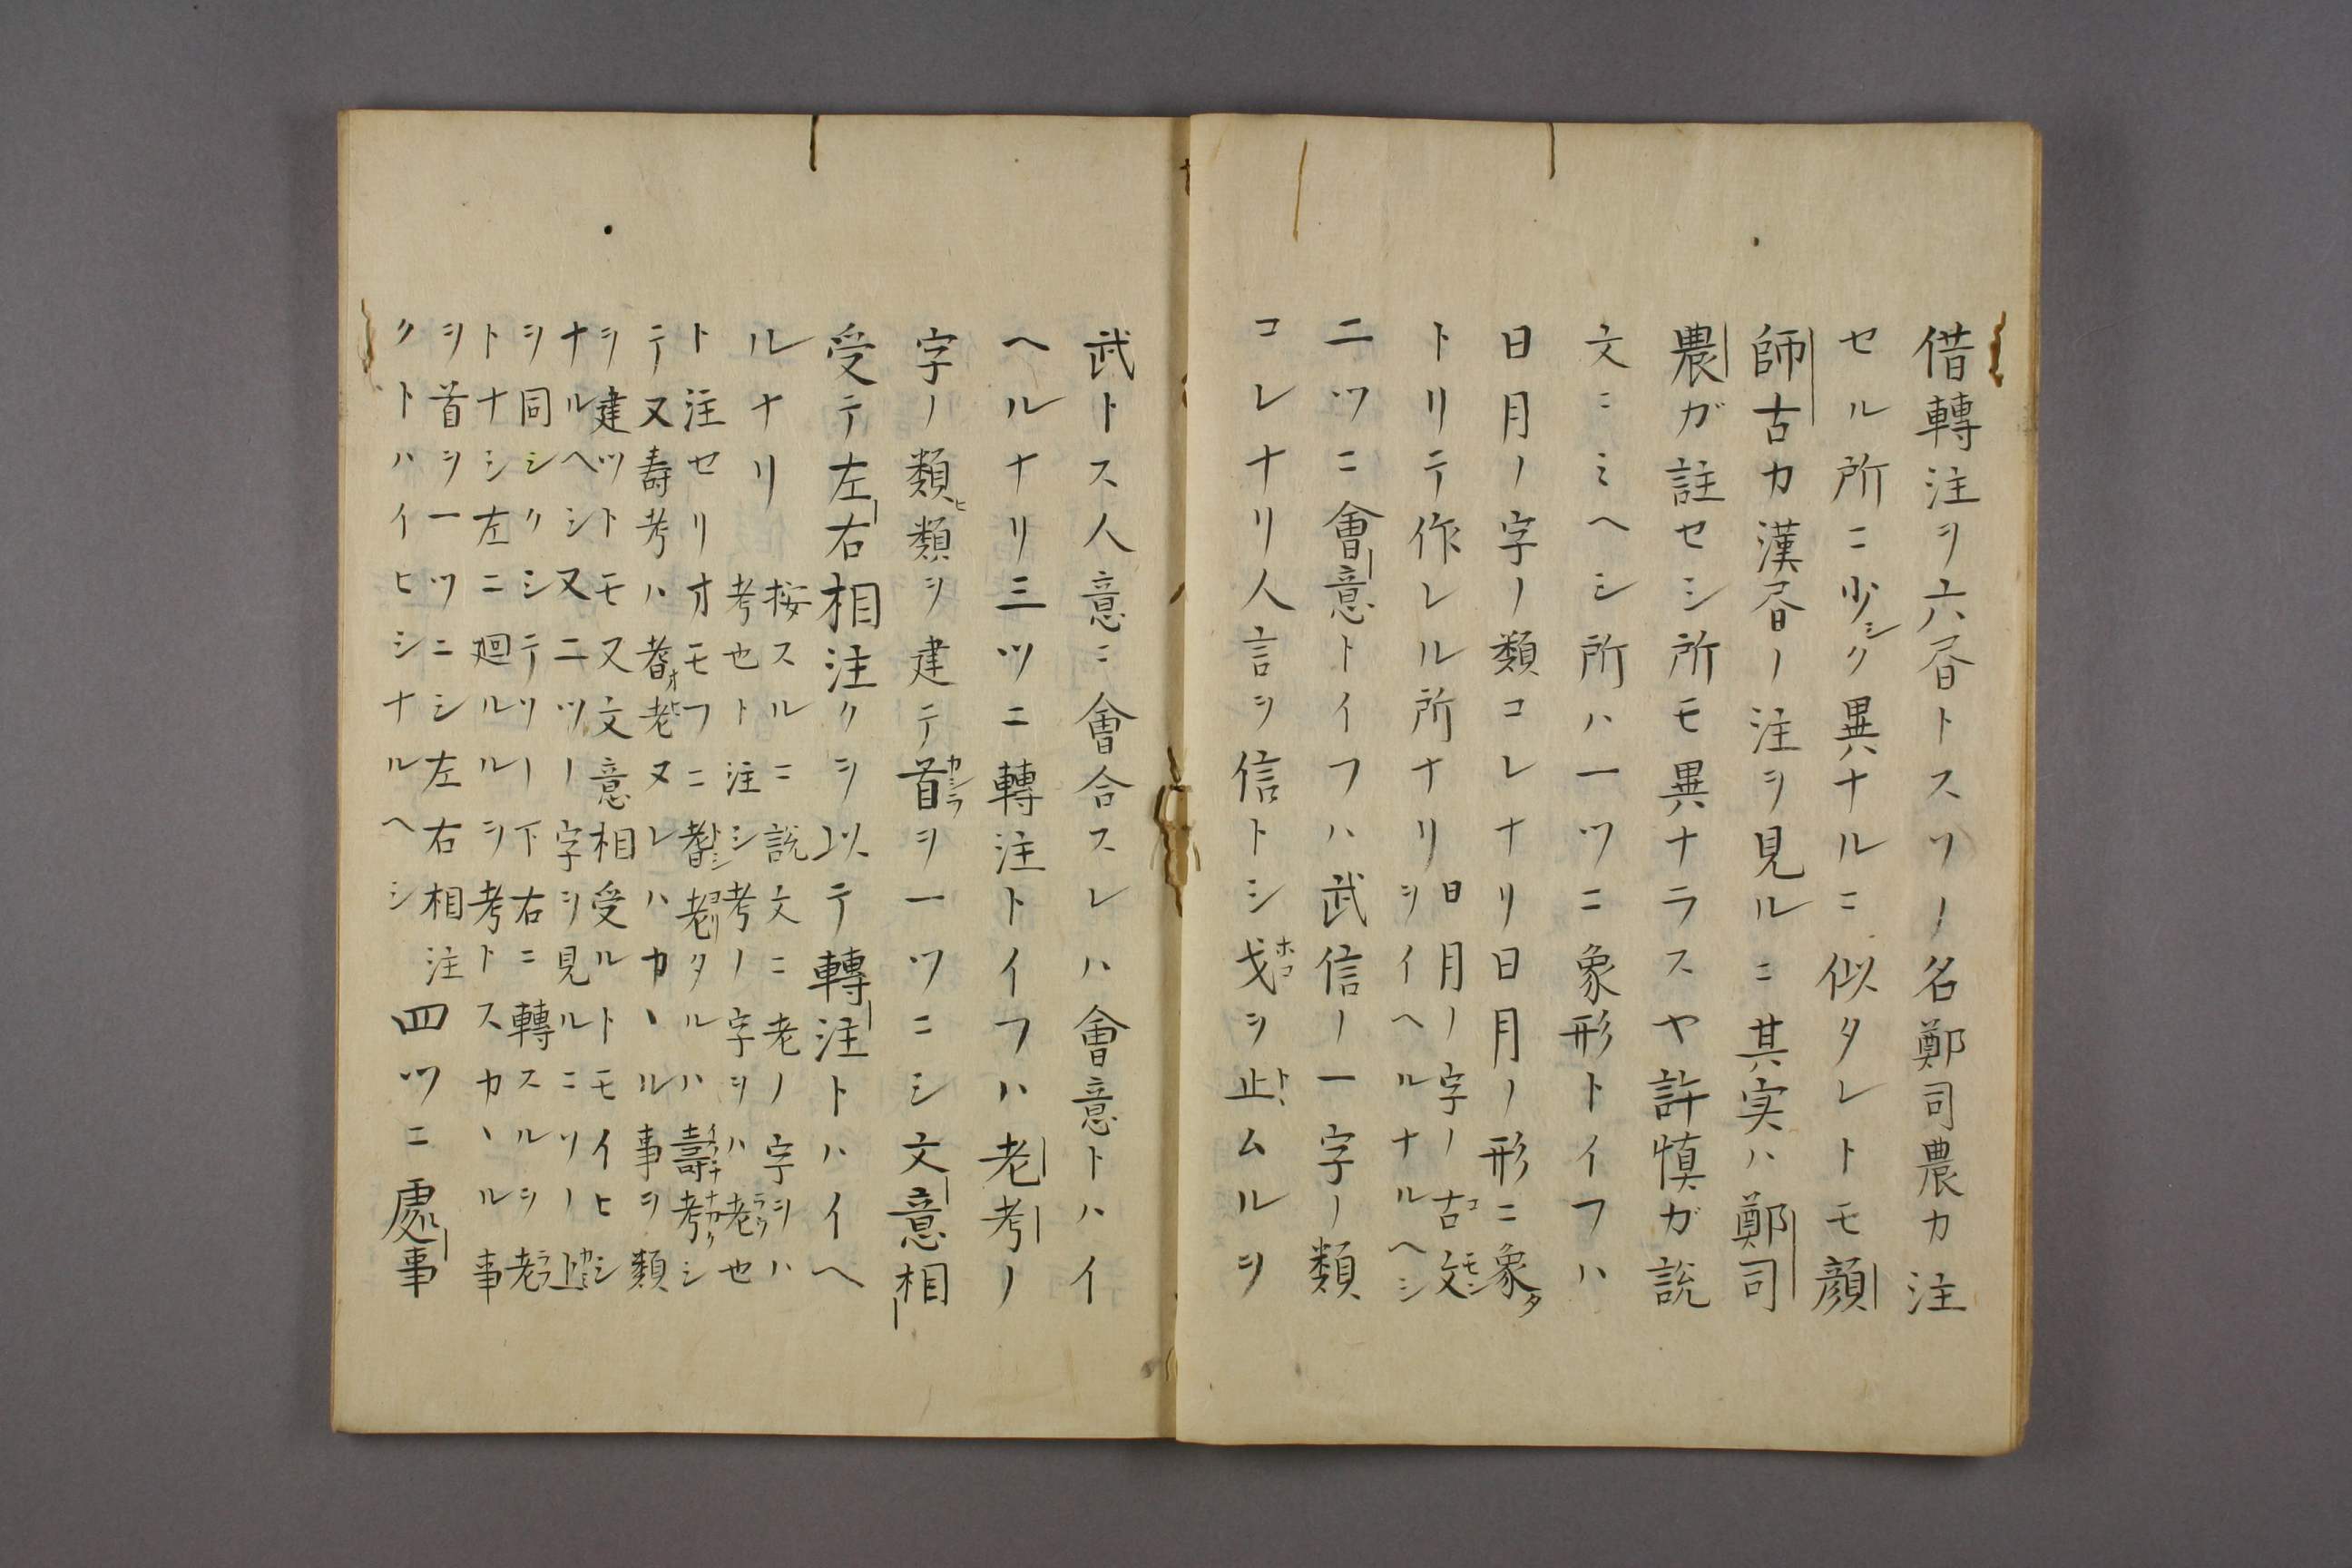 借轉注ヲ六書トスソノ名鄭司農カ注
セル所ニ少シク異ナルニ似タレトモ顔
師古カ漢書ノ注ヲ見ルニ其実ハ鄭司
農ガ註セシ所モ異ナラスヤ許慎ガ說
文ニミヘシ所ハ一ツニ象形トイフハ
日月ノ字ノ類コレナリ日月ノ形ニ象タ
トリテ作レル所ナリ
日月ノ字ノ古コ文モン
ヲイヘルナルヘシ
二ツニ會意トイフハ武信ノ一字ノ類
コレナリ人言ヲ信トシ戈ホコヲ止トヽムルヲ
武トス人意ニ會合スレハ會意トハイ
ヘルナリ三ツニ轉注トイフハ老考ノ
字ノ類ヒ類ヲ建テ首カシラヲ一ツニシ文意相
受テ左右相注クヲ以テ轉注トハイヘ
ルナリ
按スルニ說文ニ老ノ字ヲハ
考也ト注シ考ノ字ヲハ老ラク也
ト注セリオモフニ耆トシ老コリタルハ壽イノチ考ナカクシ
テ又壽考ハ耆オ老ヒヌレハカヽル事ヲ類
ヲ建ツトモ又文意相受ルトモイヒシ
ナルヘシ又二ツノ字ヲ見ルニソノ上カミ
ヲ同シクシテソノ下右ニ轉スルヲ老ラフ
トナシ左ニ廻ルルヲ考トスカヽル事
ヲ首ヲ一ツニシ左右相注
クトハイヒシナルヘシ
四ツニ處事